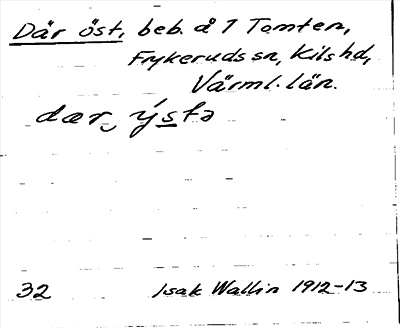 Där öst, beb. å 7 Tomten,
Frykeruds sn, Kils hd,
Värml. län.
dær‿ýstə
32 Isak Wallin 1912-13